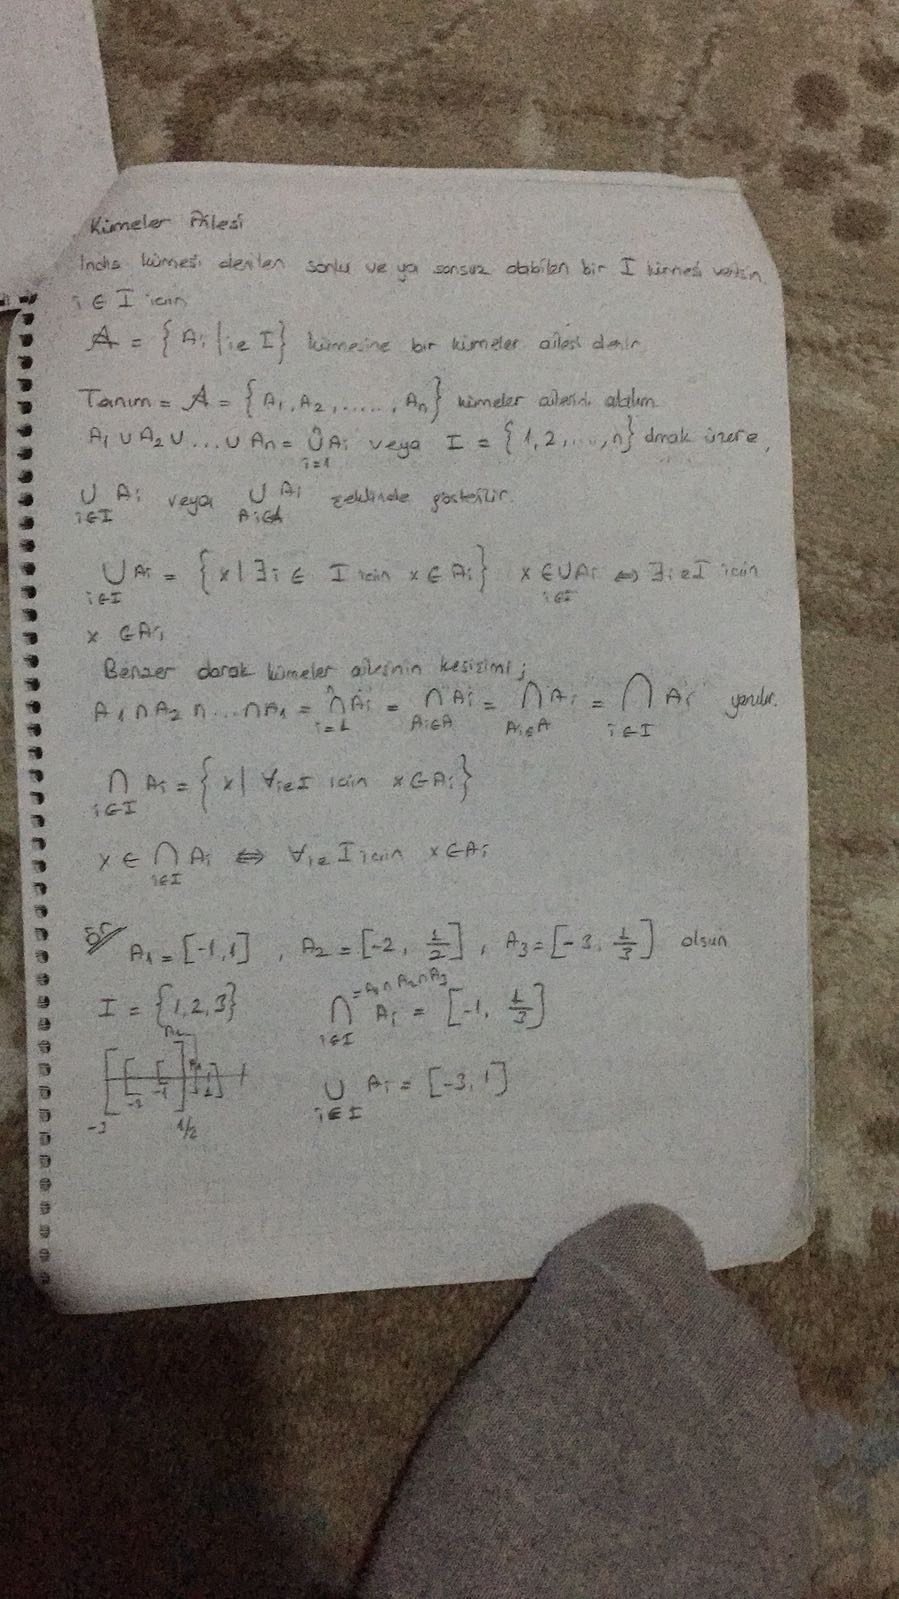 Kümeler Ailesi
İndis kümesi denilen sonlu ve ya sonsuz olabilen bir I kümesi verilsin.
i ∈ I için
𝒜 = {Ai | i ∈ I} kümesine bir kümeler ailesi denir.
Tanım = 𝒜 = {A1, A2, ......, An} kümeler ailesini alalım
A1 ∪ A2 ∪ ... ∪ An = ⋃ⁿi=1 Ai veya I = {1, 2, ..., n} olmak üzere,
⋃i∈I Ai veya ⋃Ai∈𝒜 Ai şeklinde gösterilir.
⋃i∈I Ai = {x | ∃i ∈ I için x ∈ Ai} x ∈ ⋃i∈I Ai ⇔ ∃i ∈ I için
x ∈ Ai
Benzer olarak kümeler ailesinin kesişimi;
A1 ∩ A2 ∩ ... ∩ A1 = ⋂ⁿi=1 Ai = ⋂Ai∈A Ai = ⋂Ai∈A Ai = ⋂i∈I Ai yazılır.
⋂i∈I Ai = {x | ∀i∈I için x ∈ Ai}
x ∈ ⋂i∈I Ai ⇔ ∀i∈I için x ∈ Ai
ör/ A1 = [-1, 1] , A2 = [-2, 1/2] , A3 = [-3, 1/3] olsun
I = {1, 2, 3} ⋂i∈I Ai = A1 ∩ A2 ∩ A3 = [-1, 1/3]
⋃i∈I Ai = [-3, 1]
-3 1/2